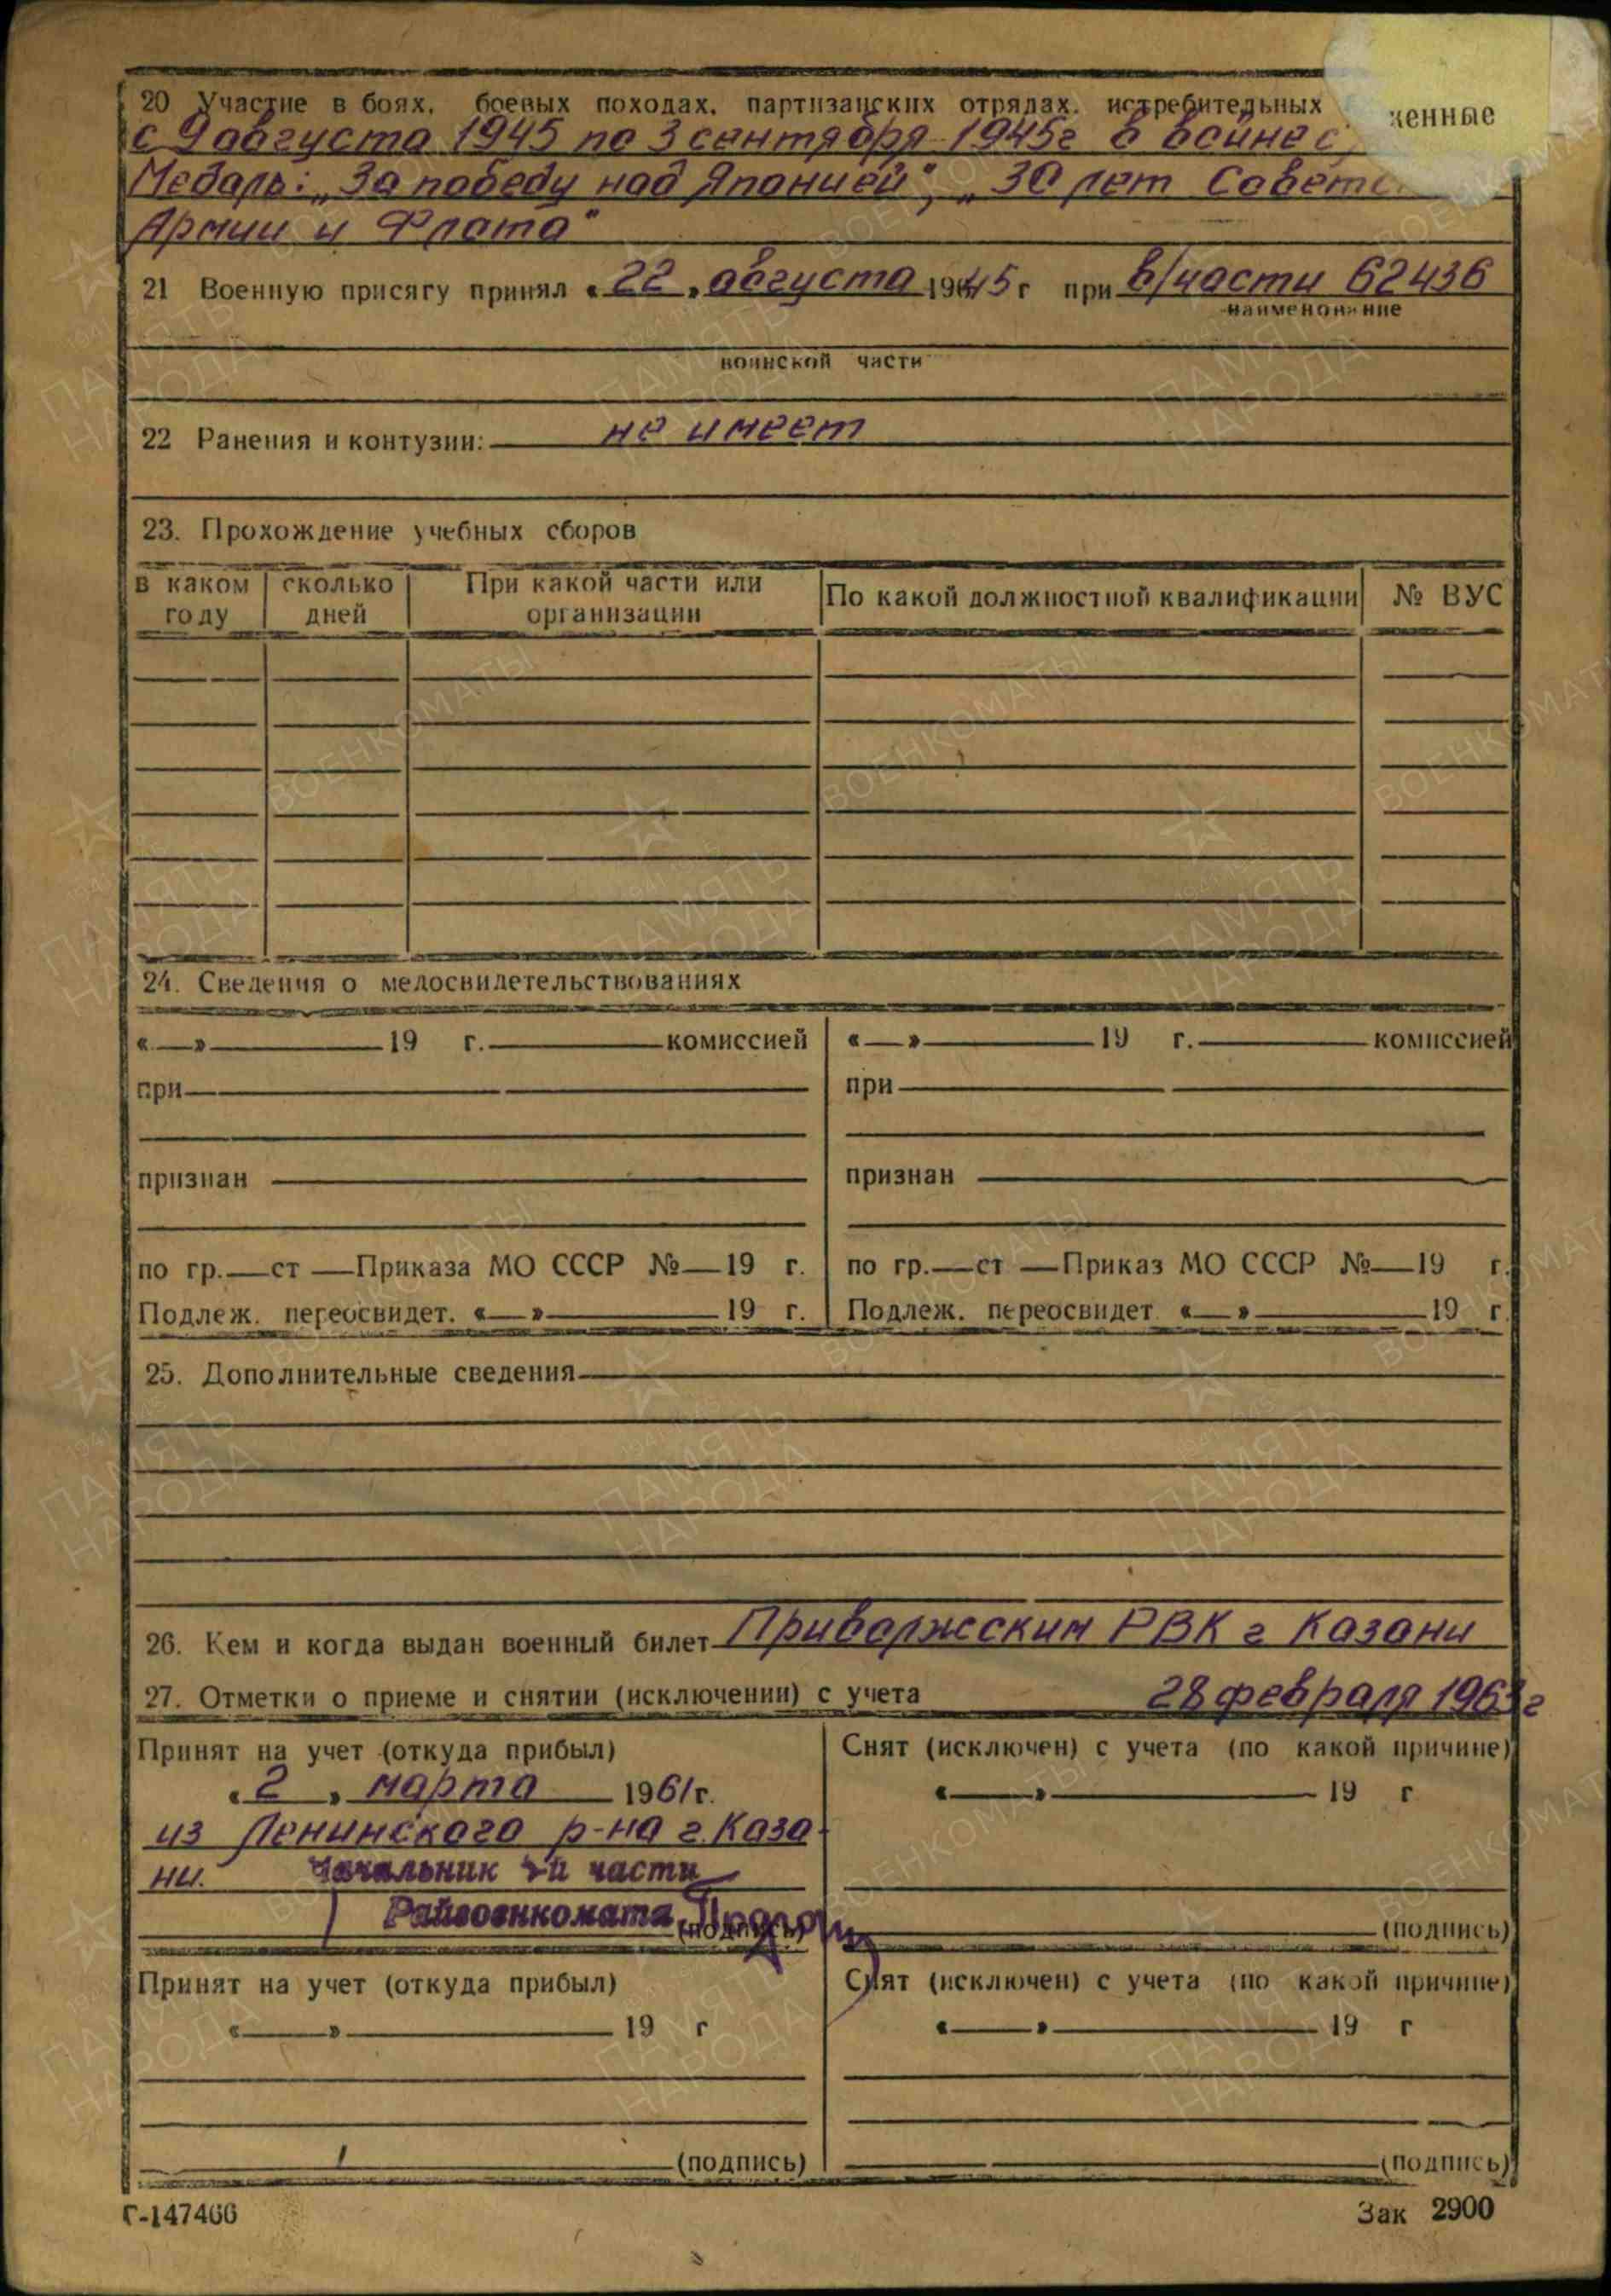 20 Участие в боях, боевых походах, партизанских отрядах, истребительных женные
с 9 августа 1945 по 3 сентября 1945г в войне с
Медаль: „За победу над Японией", „30 лет Советс
Армии и Флота"
21 Военную присягу принял «22» августа 1945 г при в/части 62436
наименование
воинской части
22 Ранения и контузии: не имеет
23. Прохождение учебных сборов
в каком сколько При какой части или По какой должностной квалификации № ВУС
году дней организации
24. Сведения о медосвидетельствованиях
« » 19 г. комиссией « » 19 г. комиссией
при при
признан признан
по гр. ст Приказа МО СССР № 19 г. по гр. ст Приказ МО СССР № 19 г.
Подлеж. переосвидет. « » 19 г. Подлеж. переосвидет « » 19 г.
25. Дополнительные сведения
26. Кем и когда выдан военный билет Приволжским РВК г Казани
27. Отметки о приеме и снятии (исключении) с учета 28 февраля 1961г
Принят на учет (откуда прибыл) Снят (исключен) с учета (по какой причине)
«2» марта 1961г. « » 19 г
из Ленинского р-на г. Каза-
ни. Начальник части
Райвоенкомата (подпись) (подпись)
Принят на учет (откуда прибыл) Снят (исключен) с учета (по какой причине)
« » 19 г « » 19 г
(подпись) (подпись)
Г-147466 Зак 2900
ПАМЯТЬ НАРОДА
ВОЕНКОМАТЫ